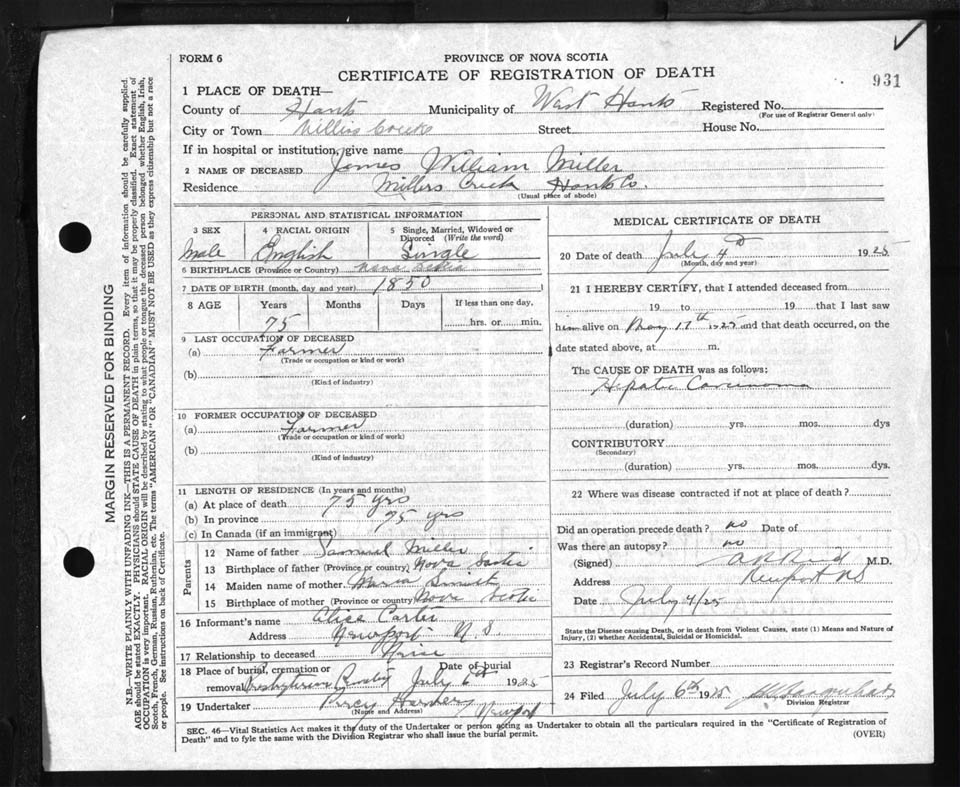 FORM 6
PROVINCE OF NOVA SCOTIA
CERTIFICATE OF REGISTRATION OF DEATH
931
1 PLACE OF DEATH—
County of Hants Municipality of West Hants Registered No.
(For use of Registrar General only)
City or Town Street House No.
If in hospital or institution, give name
2 NAME OF DECEASED James William Miller
Residence Millers Creek Hants Co.
(Usual place of abode)
PERSONAL AND STATISTICAL INFORMATION
3 SEX 4 RACIAL ORIGIN 5 Single, Married, Widowed or Divorced (Write the word)
Male English Single
6 BIRTHPLACE (Province or Country) Nova Scotia
7 DATE OF BIRTH (month, day and year) 1850
8 AGE Years Months Days If less than one day,
75 hrs. or min.
9 LAST OCCUPATION OF DECEASED
(a) Farmer
(Trade or occupation or kind of work)
(b)
(Kind of industry)
10 FORMER OCCUPATION OF DECEASED
(a) Farmer
(Trade or occupation or kind of work)
(b)
(Kind of industry)
11 LENGTH OF RESIDENCE (In years and months)
(a) At place of death 75 yrs
(b) In province 75 yrs
(c) In Canada (if an immigrant)
Parents
12 Name of father Samuel Miller
13 Birthplace of father (Province or country) Nova Scotia
14 Maiden name of mother Maria
15 Birthplace of mother (Province or country) Nova Scotia
16 Informant's name Alice Carter
Address Newport N.S.
17 Relationship to deceased
18 Place of burial, cremation or removal Presbyterian Date of burial July 6th 1925
19 Undertaker Percy Harvey Newport
(Name and Address)
MEDICAL CERTIFICATE OF DEATH
20 Date of death July 4th 1925
(Month, day and year)
21 I HEREBY CERTIFY, that I attended deceased from
19 to 19 that I last saw
him alive on May 17th 1925 and that death occurred, on the
date stated above, at m.
The CAUSE OF DEATH was as follows:
Hepatic Carcinoma
(duration) yrs. mos. dys
CONTRIBUTORY
(Secondary)
(duration) yrs. mos. dys.
22 Where was disease contracted if not at place of death?
Did an operation precede death? no Date of
Was there an autopsy? no
(Signed) M.D.
Address Newport NS
Date July 4/25
State the Disease causing Death, or in death from Violent Causes, state (1) Means and Nature of
Injury, (2) whether Accidental, Suicidal or Homicidal.
23 Registrar's Record Number
24 Filed July 6th 1925
Division Registrar
SEC. 46—Vital Statistics Act makes it the duty of the Undertaker or person acting as Undertaker to obtain all the particulars required in the "Certificate of Registration of
Death" and to fyle the same with the Division Registrar who shall issue the burial permit.
(OVER)
MARGIN RESERVED FOR BINDING
N.B.—WRITE PLAINLY WITH UNFADING INK—THIS IS A PERMANENT RECORD. Every item of information should be carefully supplied.
AGE should be stated EXACTLY. PHYSICIANS should STATE CAUSE OF DEATH in plain terms, so that it may be properly classified. Exact statement of
OCCUPATION is very important. RACIAL ORIGIN will be described by stating to what people or tongue the deceased person belonged whether English, Irish,
Scotch, French, German, Russian, Ruthenian, etc. The terms "AMERICAN" OR "CANADIAN" MUST NOT BE USED as they express citizenship but not a race
or people. See instructions on back of Certificate.